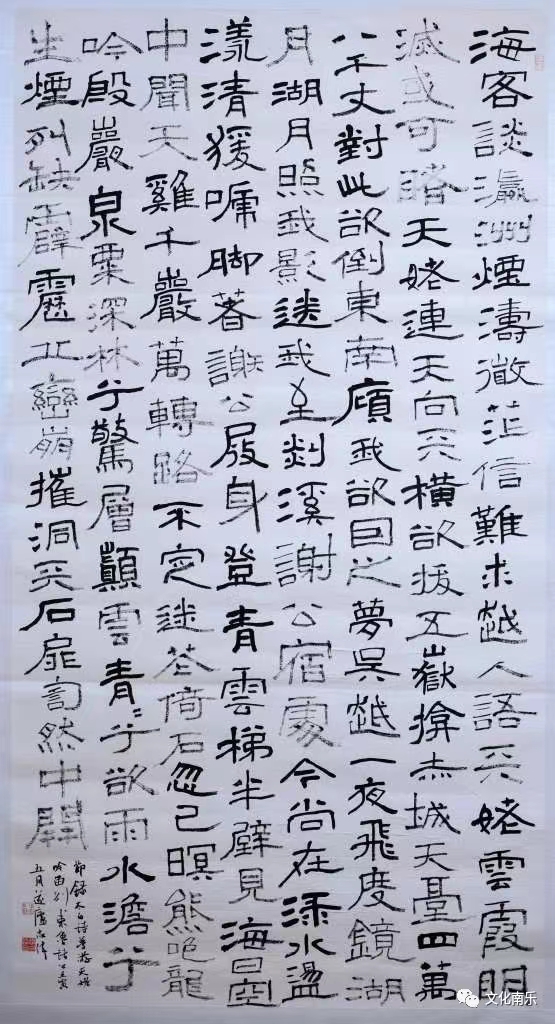 海客談瀛洲煙濤微茫信難求越人語天姥雲霞明
滅或可睹天姥連天向天橫欲拔五嶽揜赤城天臺四萬
八千丈對此欲倒東南傾我欲因之夢吳越一夜飛度鏡湖
月湖月照我影送我至剡溪謝公宿處今尚在淥水盪
漾清猨嗁腳著謝公屐身登青雲梯半壁見海日空
中聞天雞千巖萬轉路不定迷花倚石忽已暝熊咆龍
吟殷巖泉栗深林兮驚層巔雲青〻兮欲雨水澹兮
生煙列缺霹靂丘巒崩摧洞天石扉訇然中開
節錄太白詩夢游天姥
吟留別東魯諸公壬寅
五月
文化南乐